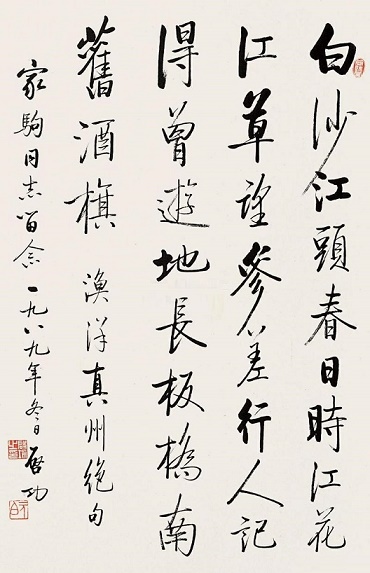 白沙江頭春日時江花
江草望參差行人記
得曾遊地長板橋南
舊酒旗 漁洋真州絶句
家駒同志留念 一九八九年冬日 啓功